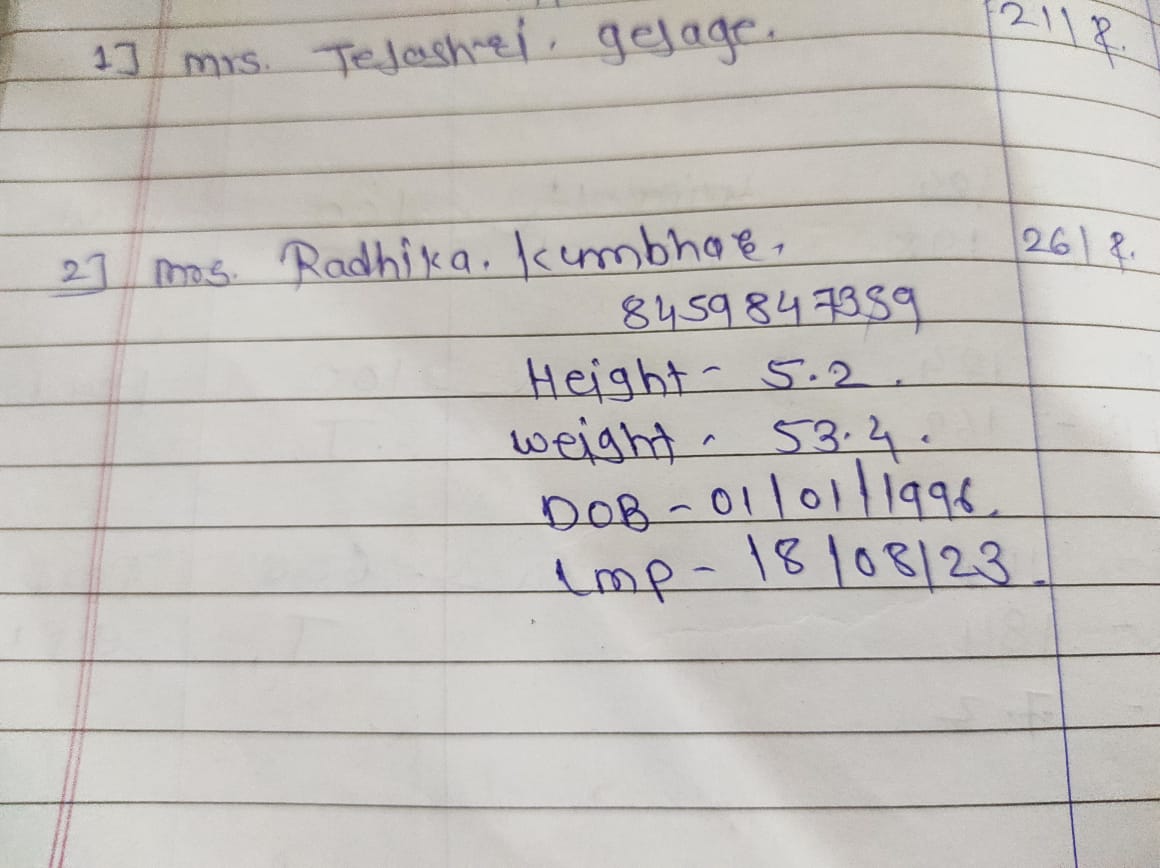 1] mrs. Tejashrei. gejage. 21/F.
2] mrs. Radhika. Kumbhar, 26/F.
8459847359
Height - 5.2.
weight - 53.4.
DOB - 01/01/1996.
Lmp - 18/08/23.